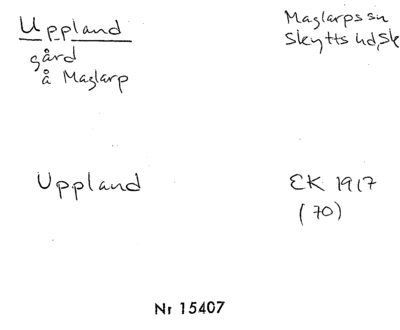 Uppland
Maglarps sn
gård
Skytts hd, Sk
å Maglarp
Uppland
EK 1917
(70)
Nr 15407